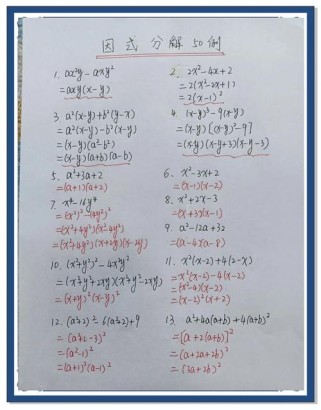 因式分解50例
1. ax²y - axy²
= axy(x-y)
2. 2x²-4x+2
= 2(x²-2x+1)
= 2(x-1)²
3. a²(x-y)+b²(y-x)
= a²(x-y)-b²(x-y)
= (x-y)(a²-b²)
= (x-y)(a+b)(a-b)
4. (x-y)³-9(x-y)
= (x-y)[(x-y)²-9]
= (x-y)(x-y+3)(x-y-3)
5. a²+3a+2
= (a+1)(a+2)
6. x²-3x+2
= (x-1)(x-2)
7. x⁴-16y⁴
= (x²)²-(4y²)²
= (x²+4y²)(x²-4y²)
= (x²+4y²)(x+2y)(x-2y)
8. x²+2x-3
= (x+3)(x-1)
9. a²-12a+32
= (a-4)(a-8)
10. (x²+y²)²-4x²y²
= (x²+y²+2xy)(x²+y²-2xy)
= (x+y)²(x-y)²
11. x²(x-2)+4(2-x)
= x²(x-2)-4(x-2)
= (x²-4)(x-2)
= (x-2)²(x+2)
12. (a²+2)²-6(a²+2)+9
= (a²+2-3)²
= (a²-1)²
= (a+1)²(a-1)²
13. a²+4a(a+b)+4(a+b)²
= [a+2(a+b)]²
= (a+2a+2b)²
= (3a+2b)²